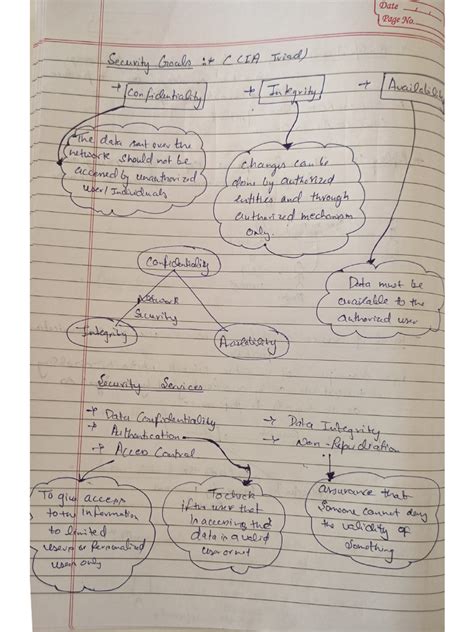 Date
Page No.
Security Goals :→ (CIA Triad)
→ Confidentiality
→ Integrity
→ Availability
The data sent over the
network should not be
accessed by unauthorized
user/Individuals
Changes can be
done by authorized
entities and through
authorized mechanism
only.
Data must be
available to the
authorized user
Confidentiality
Network
Security
Integrity
Availability
Security Services
→ Data Confidentiality
→ Authentication
→ Access Control
→ Data Integrity
→ Non-Repudiation
To give access
to the information
to limited
user or personalized
users only
To check
if the user that
is accessing the
data is a valid
user or not
assurance that
someone cannot deny
the validity of
something